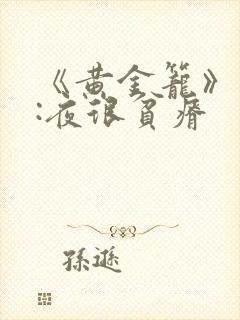 《黄金籠》
:夜很貧瘠
孫遜